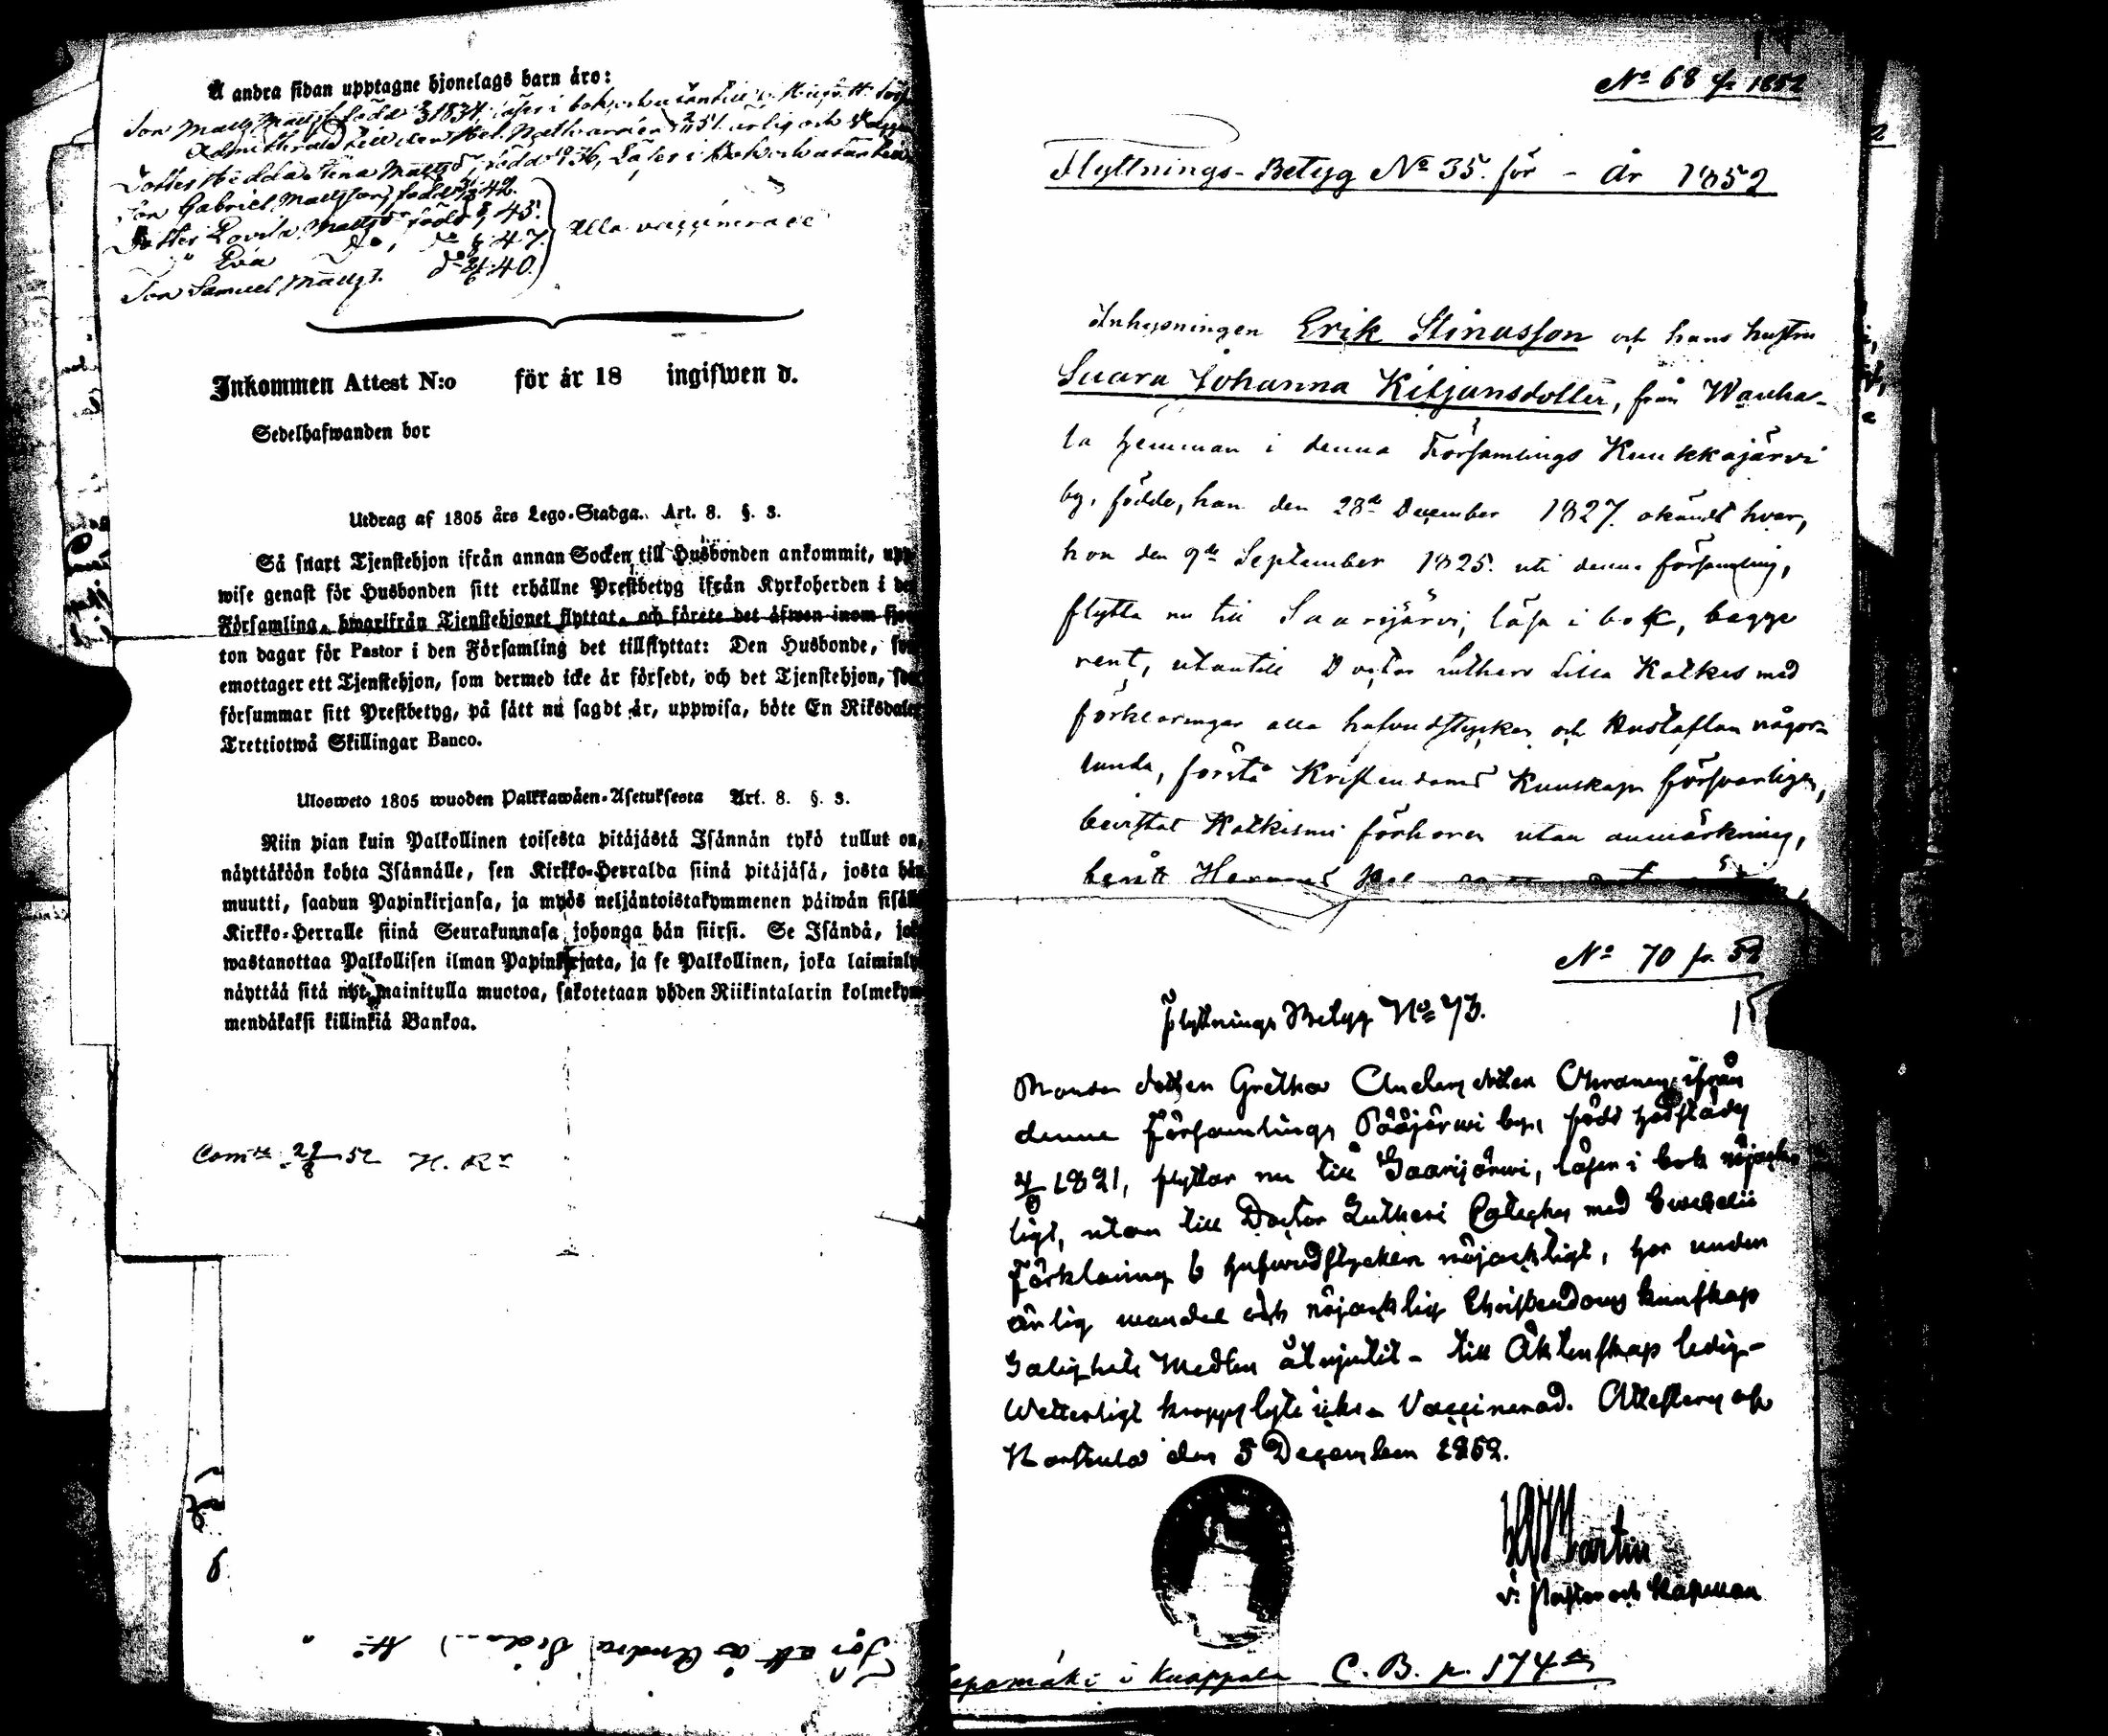 Å andra sidan upptagne hjonelags barn äro:
Son Matts Mattss. född 1834, läser i bok, utantill
Admitterad till den Hel. Nattvarden 51. ärlig och
Dotter Hedda Stina Mattsdr, född 36, Läser i bok och utantill
Son Gabriel Mattsson, född 42.
Dotter Lovisa Mattsdr född 45.
" Eva do, do 47.
Alla vaccinerade
Son Samuel Mattss. do 40.
Inkommen Attest N:o för år 18 ingifwen d.
Sedelhafwanden bor
Utdrag af 1805 års Lego-Stadga. Art. 8. §. 3.
Så snart Tjenstehjon ifrån annan Socken till Husbonden ankommit, upp
wise genast för Husbonden sitt erhållne Prestbetyg ifrån Kyrkoherden i den
Församling, hwarifrån Tjenstehjonet flyttat, och förete det äfwen inom fjor
ton dagar för Pastor i den Församling det tillflyttat: Den Husbonde, som
emottager ett Tjenstehjon, som dermed icke är försedt, och det Tjenstehjon, som
försummar sitt Prestbetyg, på sätt nu sagdt är, uppwisa, böte En Riksdaler
Trettiotwå Skillingar Banco.
Ulosweto 1805 wuoden Palkkawäen-Asetuksesta Art. 8. §. 3.
Niin pian kuin Palkollinen toisesta pitäjästä Isännän tykö tullut on,
näyttäköön kohta Isännälle, sen Kirkko-Herralda siinä pitäjäsä, josta hän
muutti, saadun Papinkirjansa, ja myös neljäntoistakymmenen päiwän sisällä
Kirkko-Herralle siinä Seurakunnasa johonga hän siirsi. Se Isändä, joka
wastanottaa Palkollisen ilman Papinkirjata, ja se Palkollinen, joka laiminly
näyttää sitä nyt mainitulla muotoa, sakotetaan yhden Riikintalarin kolmekym
mendäkaksi killinkiä Bankoa.
Comt. 29/8 52 H. Rr
för att å Andra Sidan
No 68 fr 1852
Flyttnings-Betyg No 35. för - År 1852
Inhysningen Erik Stinasson och hans hustru
Saara Johanna Kiljansdotter, från Wanha-
la hemman i denna Församlings Kuukkajärvi
by, födde, han den 28de December 1827. okändt hvar,
hon den 9de September 1825. uti denna församling,
flytta nu till Saarijärvi, läsa i bok, begge
rent, utantill Doctor Luthers Lilla Katkes med
förklaringar alla hufvudstycken och Hustaflan någor-
lunda, förstå Kristendoms Kunskapen försvarligen,
bevistat Katkismi förhören utan anmärkning,
begått Herrans
No 70 fr. 52
15
Flyttnings Betyg No 73.
Bonde dottren Gretha Anders dotter Ahronen ifrån
denne Församlings Pääjärwi by, född härstädes
4/9 1821, flyttar nu till Saarijärwi, läser i bok nöjagh-
ligt, utan till Doctor Lutheri Cateches med Swebelii
Förklaring 6 hufwudstycken nöjachtigt, har under
ärlig wandel och nöjachtig Christendoms kunskap
Salighets Medlen åtnjutit - till Äktenskap ledig -
Wetterligt kropps lyte icke - Vaccinerad. Attesteras af
Karstula den 5 December 1852.
Martin
v: Pastor och Kapellan
i Kuoppala C. B. p. 174